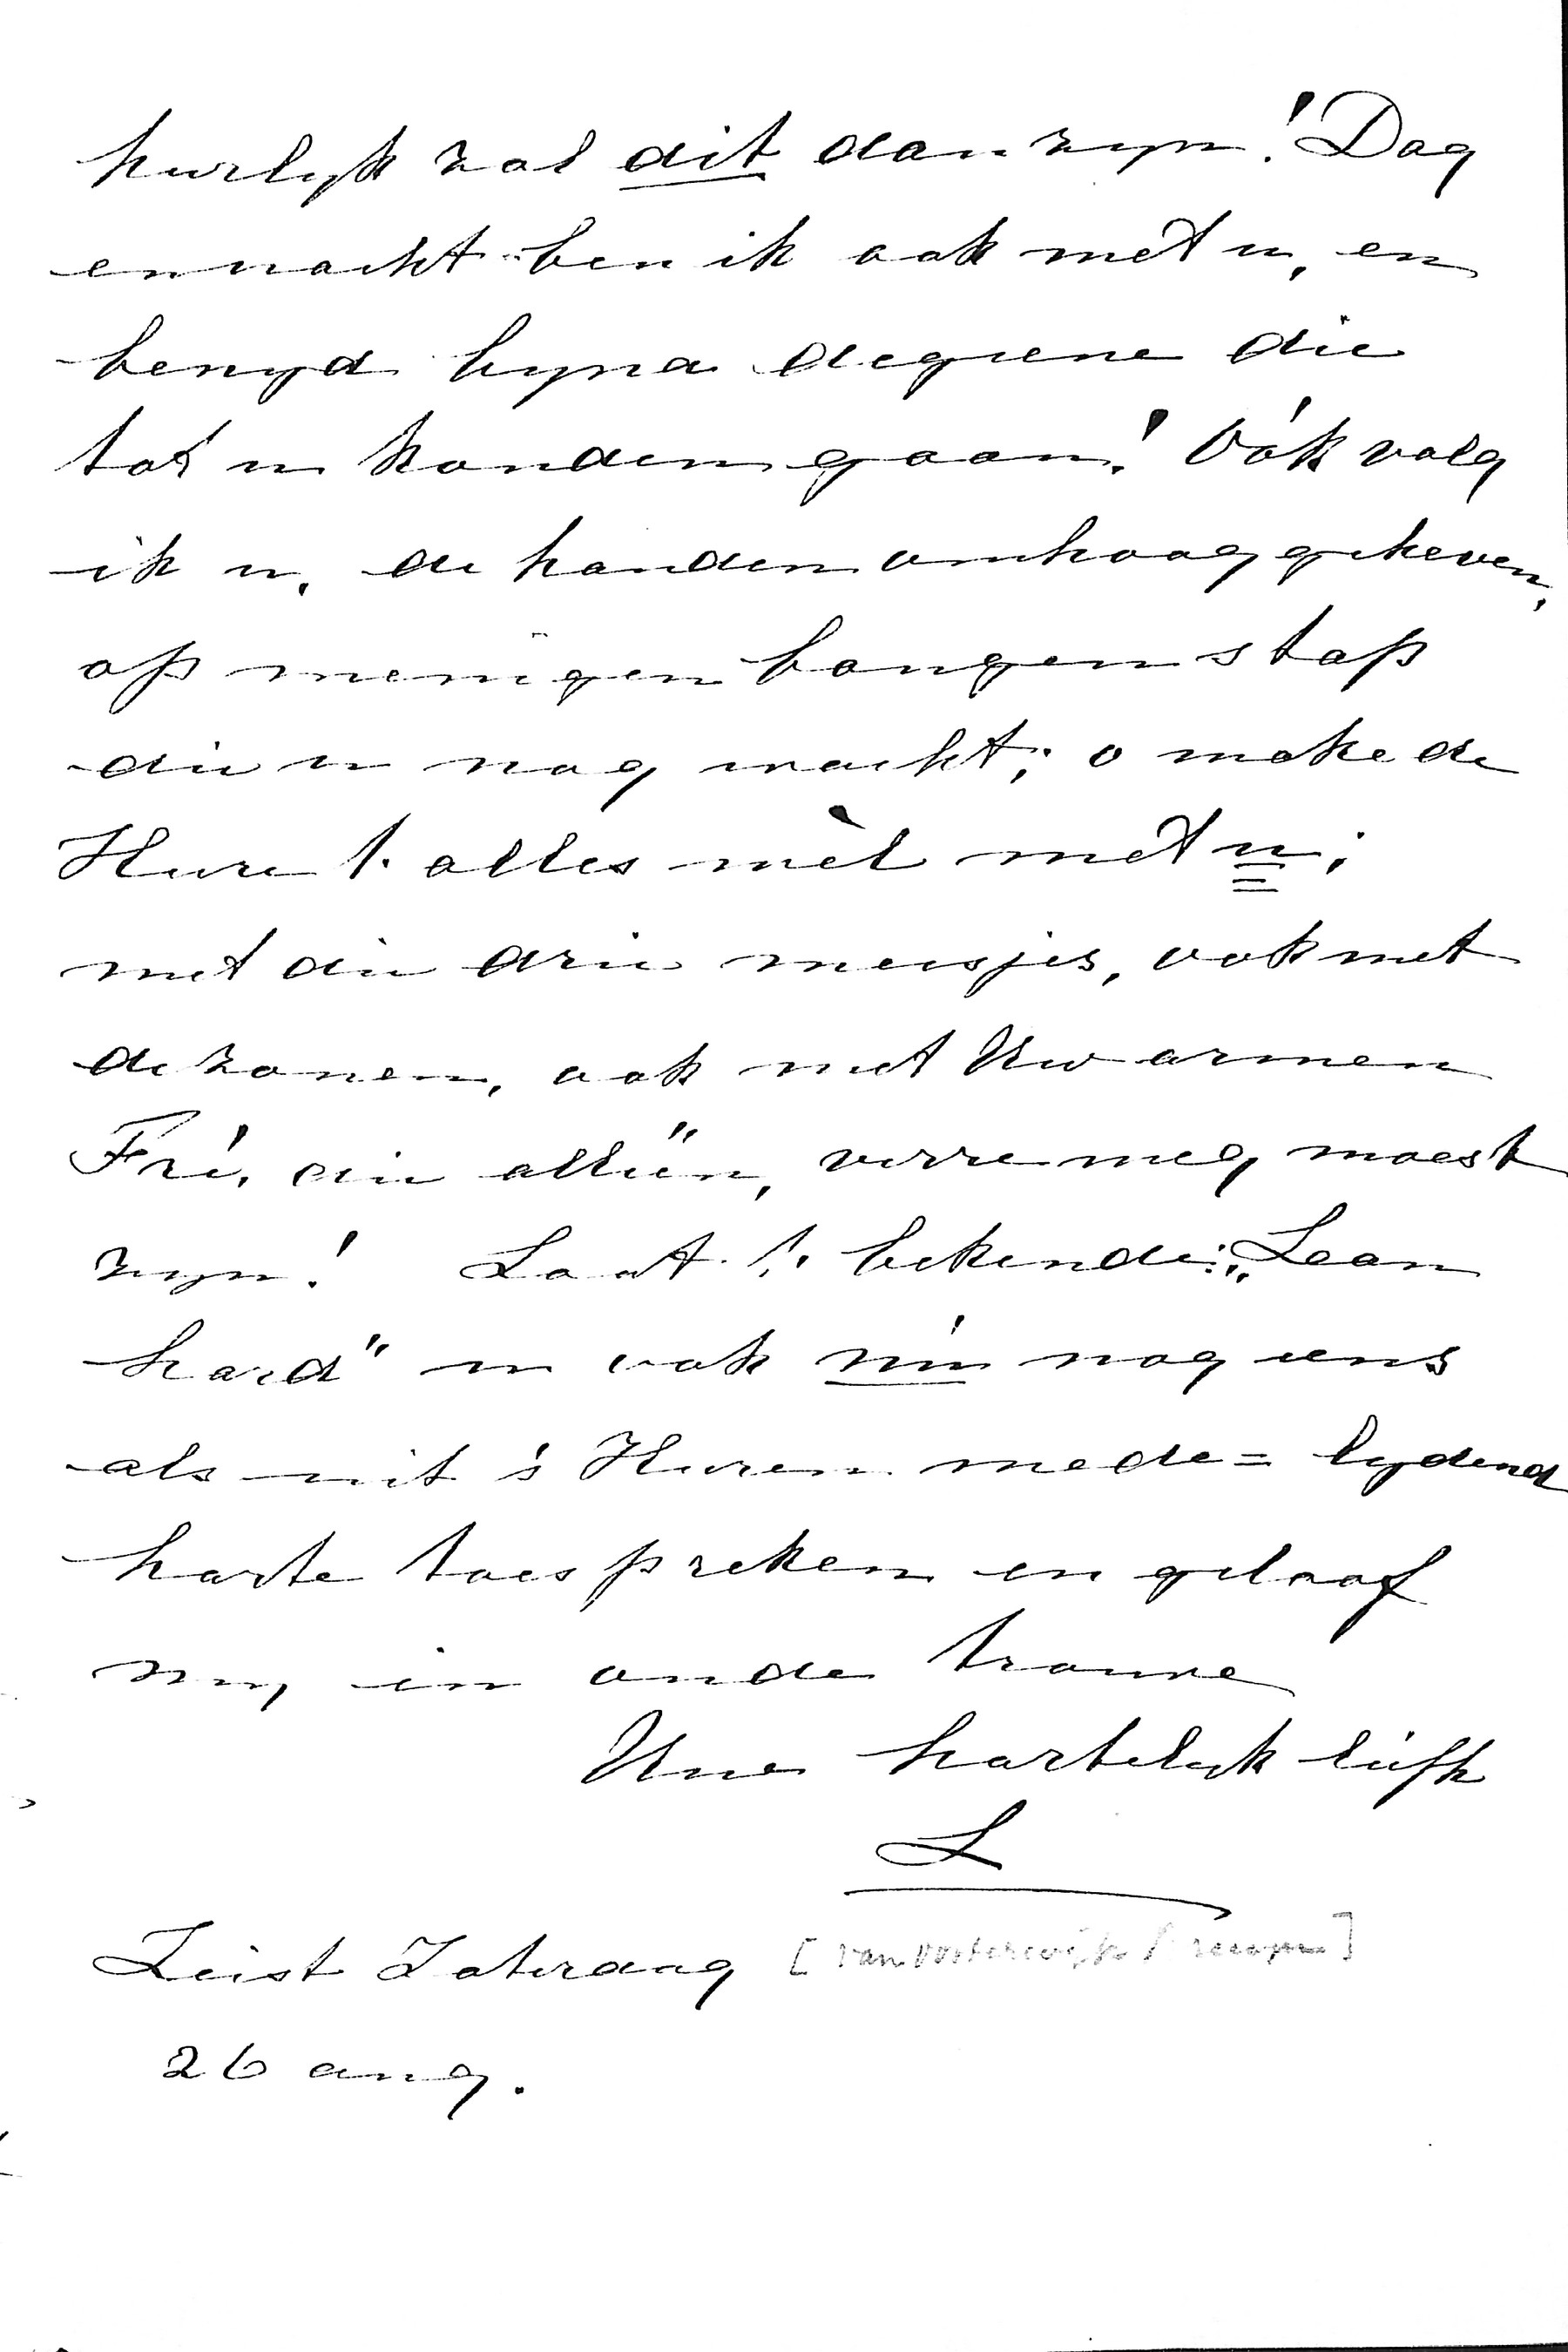 heerlyk zal dit dan zyn! Dag
en nacht ben ik ook met u, en
benyd byna degeene die
tot u konden gaan! Oók volg
ik u, de handen omhoog geheven,
op menigen bangen stap
die u nog wacht; o make de
Heere 't alles wèl met u;
met die drie meisjes, ook met
de zonen, ook met Uw armen
Fré, die alleen, verre weg moest
zyn! Laat 't bekende: „Lean
hard" u ook nú nog eens
als uit 's Heeren mede= lydend
harte toespreken en geloof
my, in oude trouwe
Uwe hartelyk liefh
L
Zeist Zaterdag
26 aug.